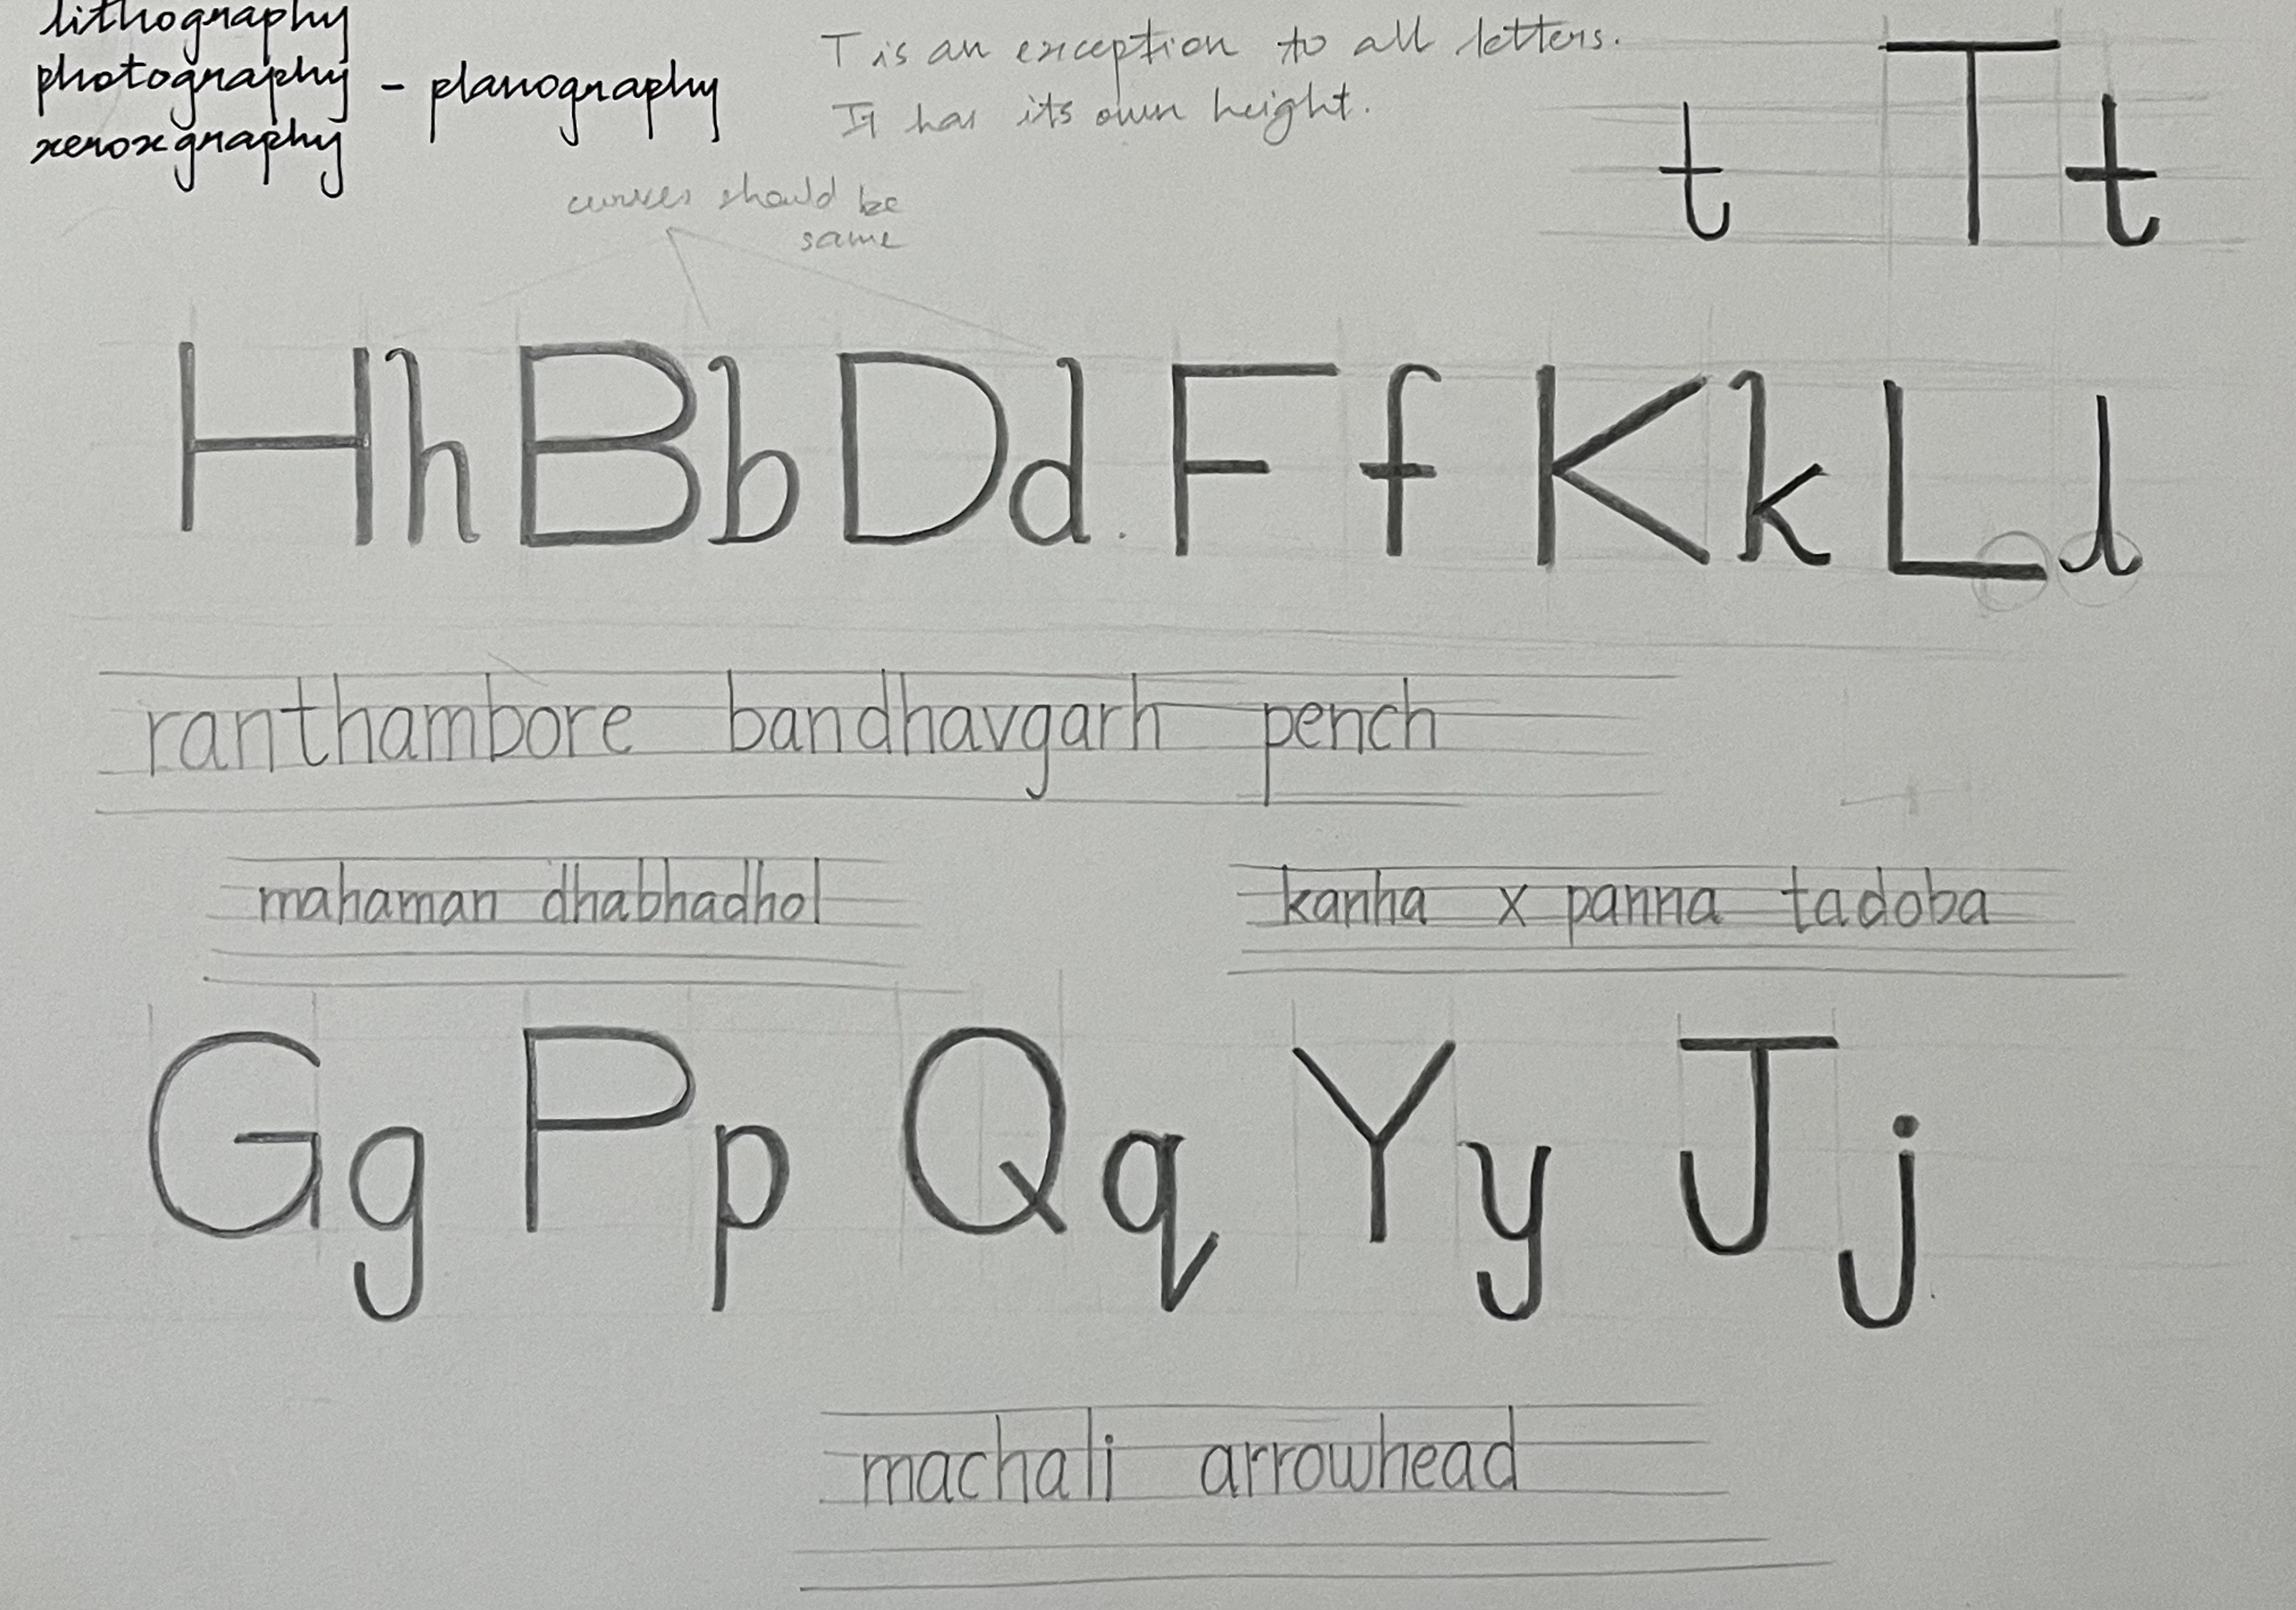 lithography
photography - planography
xeroxgraphy
T is an exception to all letters.
It has its own height.
t T t
curves should be
same
H h B b D d . F f K k L l
ranthambore bandhavgarh pench
mahaman dhabhadhol
kanha x panna tadoba
G g P p Q q Y y J j
machali arrowhead